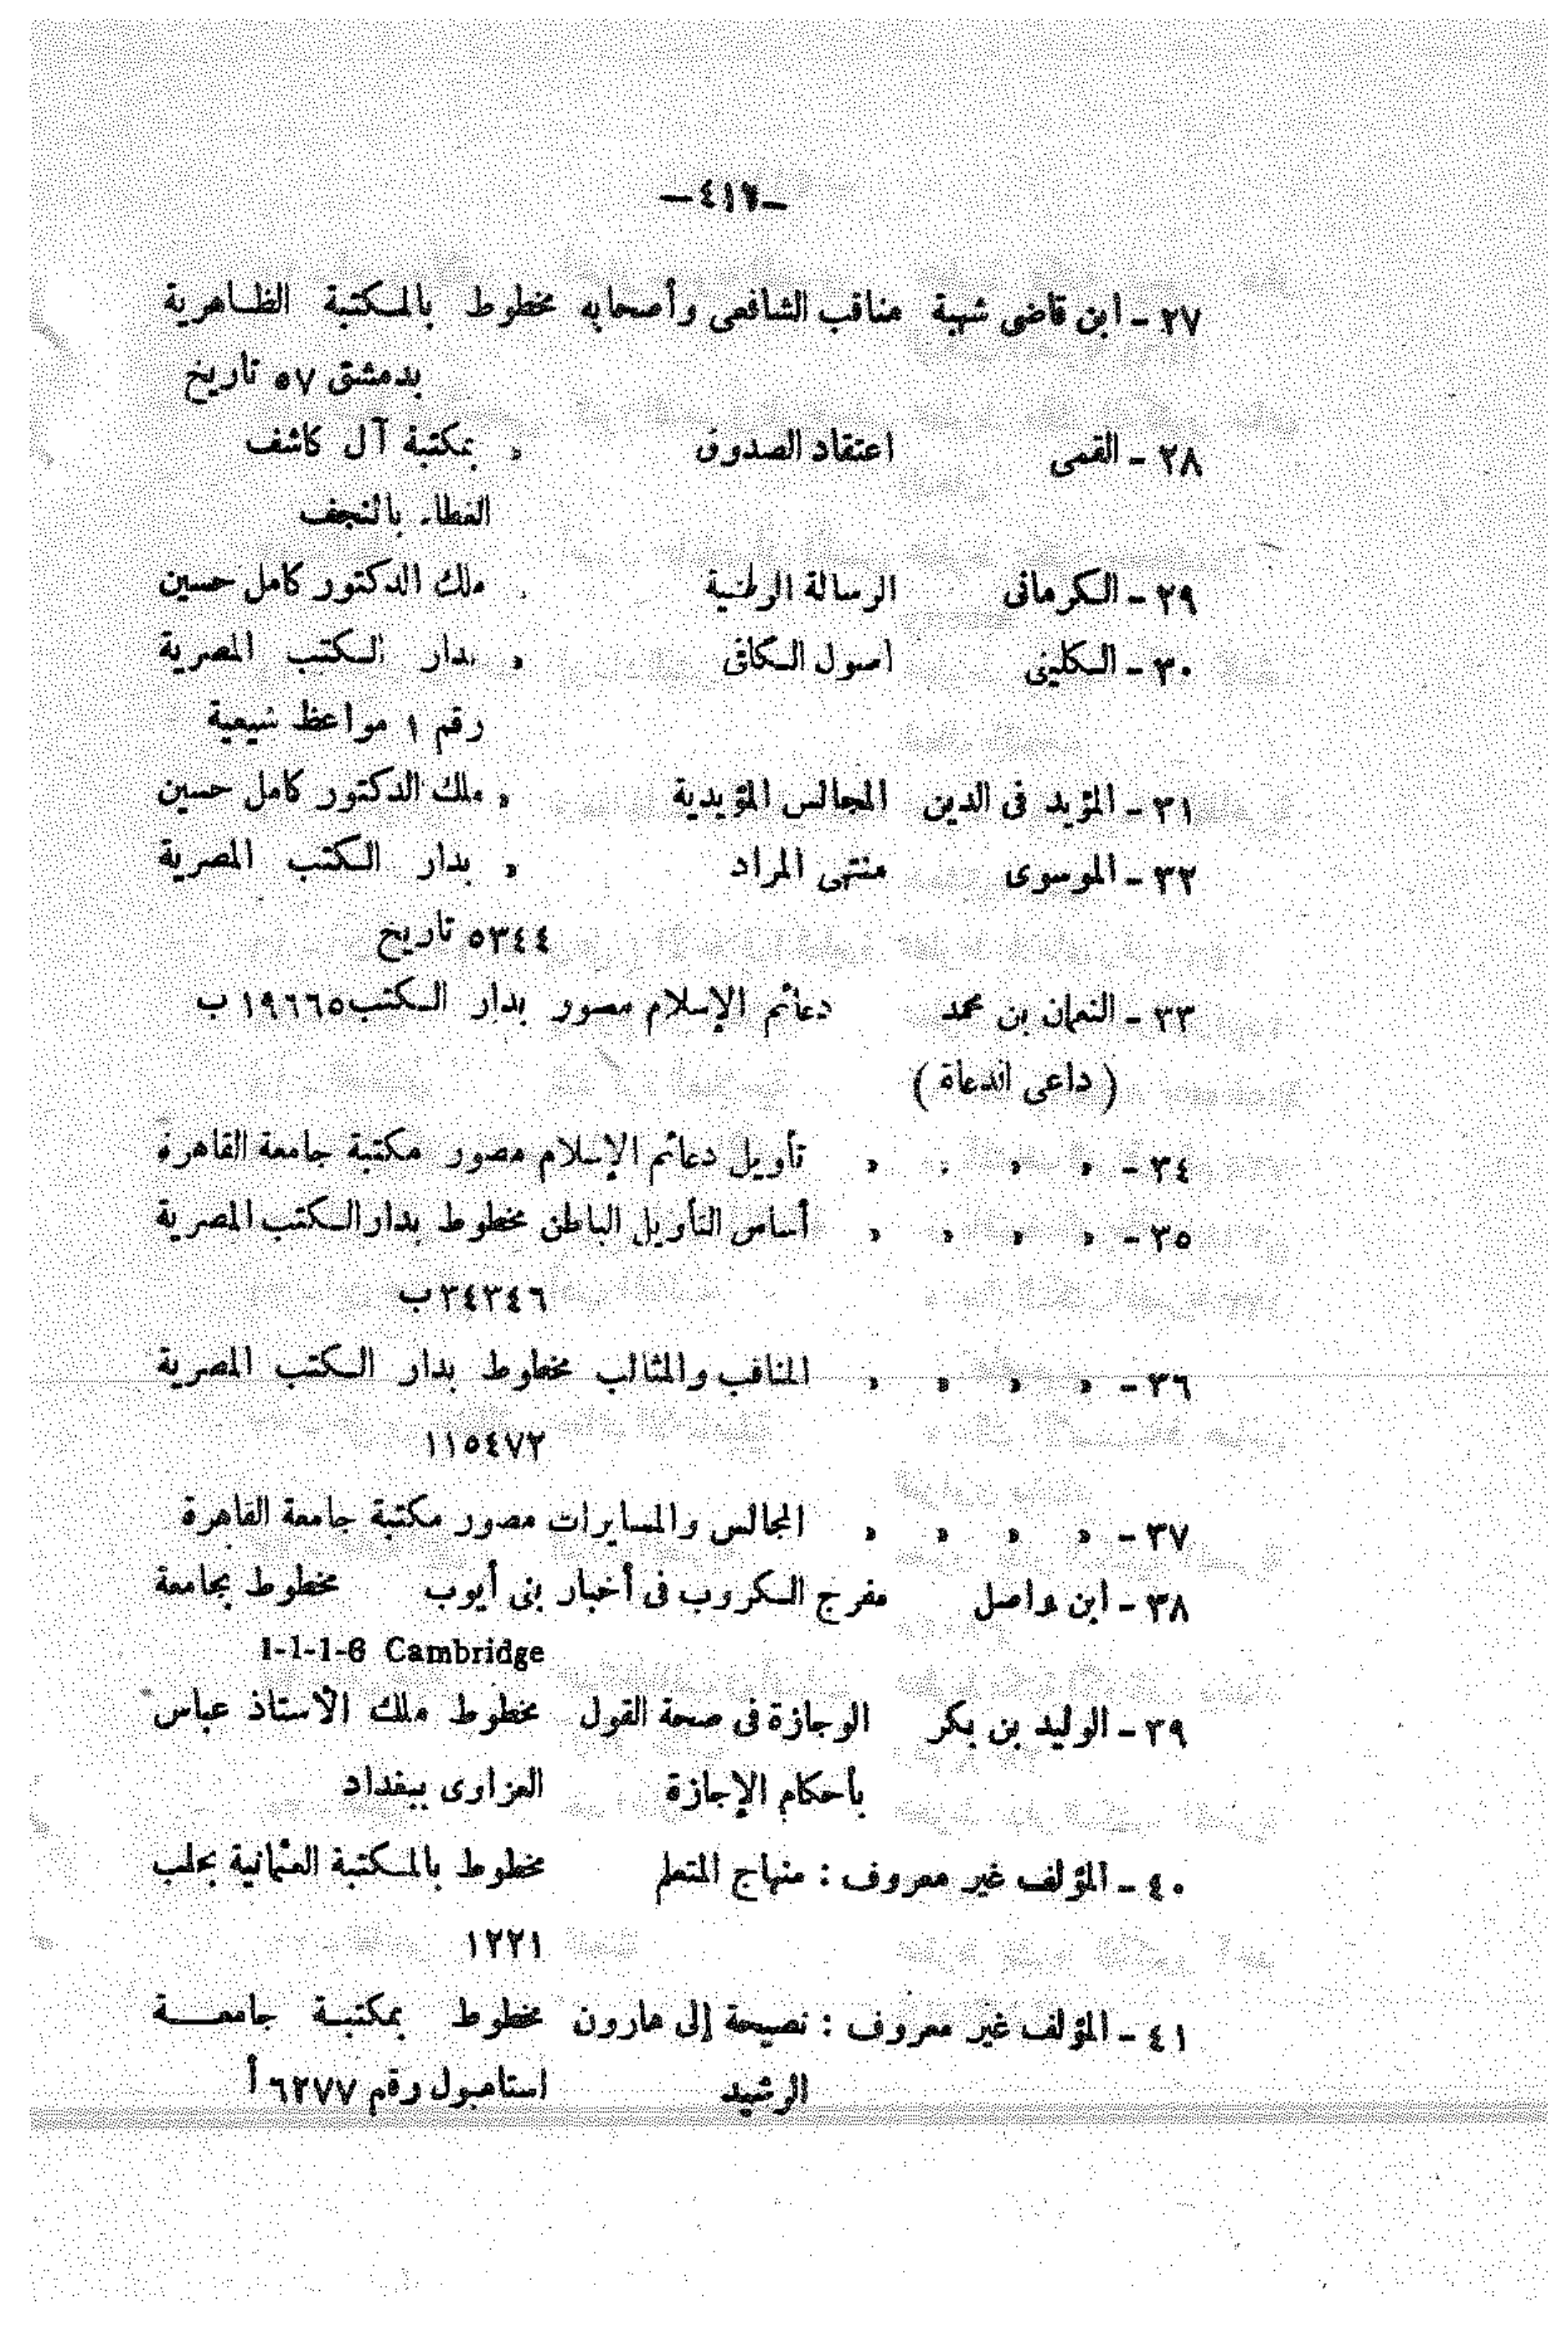 —٤١٧—
٢٧ - ابن قاضى شهبة مناقب الشافعى وأصحابه مخطوط بالمكتبة الظاهرية
بدمشق ٥٧ تاريخ
٢٨ - القمى اعتقاد الصدوق » بمكتبة آل كاشف
الغطاء بالنجف
٢٩ - الكرمانى الرسالة الوظنية » ملك الدكتور كامل حسين
٣٠ - الكلينى اصول الكافى » بدار الكتب المصرية
رقم ١ مواعظ شيعية
٣١ - المؤيد فى الدين المجالس المؤيدية » ملك الدكتور كامل حسين
٣٢ - الموسوى منتهى المراد » بدار الكتب المصرية
٥٣٤٤ تاريخ
٣٣ - النعمان بن محمد دعائم الإسلام مصور بدار الكتب ١٩٦٦٥ ب
( داعى الدعاة )
٣٤ - » » » » تأويل دعائم الإسلام مصور مكتبة جامعة القاهرة
٣٥ - » » » » أساس التأويل الباطن مخطوط بدار الكتب المصرية
٢٤٣٤٦ ب
٣٦ - » » » » المناقب والمثالب مخطوط بدار الكتب المصرية
١١٥٤٧٢
٣٧ - » » » » المجالس والمسايرات مصور مكتبة جامعة القاهرة
٣٨ - ابن واصل مفرج الكروب فى أخبار بنى أيوب مخطوط بجامعة
1-1-1-6 Cambridge
٣٩ - الوليد بن بكر الوجازة فى صحة القول مخطوط ملك الأستاذ عباس
بأحكام الإجازة العزاوى ببغداد
٤٠ - المؤلف غير معروف : منهاج المتعلم مخطوط بالمكتبة العثمانية بحلب
١٢٢١
٤١ - المؤلف غير معروف : نصيحة إلى هارون مخطوط بمكتبة جامعة
الرشيد استامبول رقم ٦٢٧٧ أ